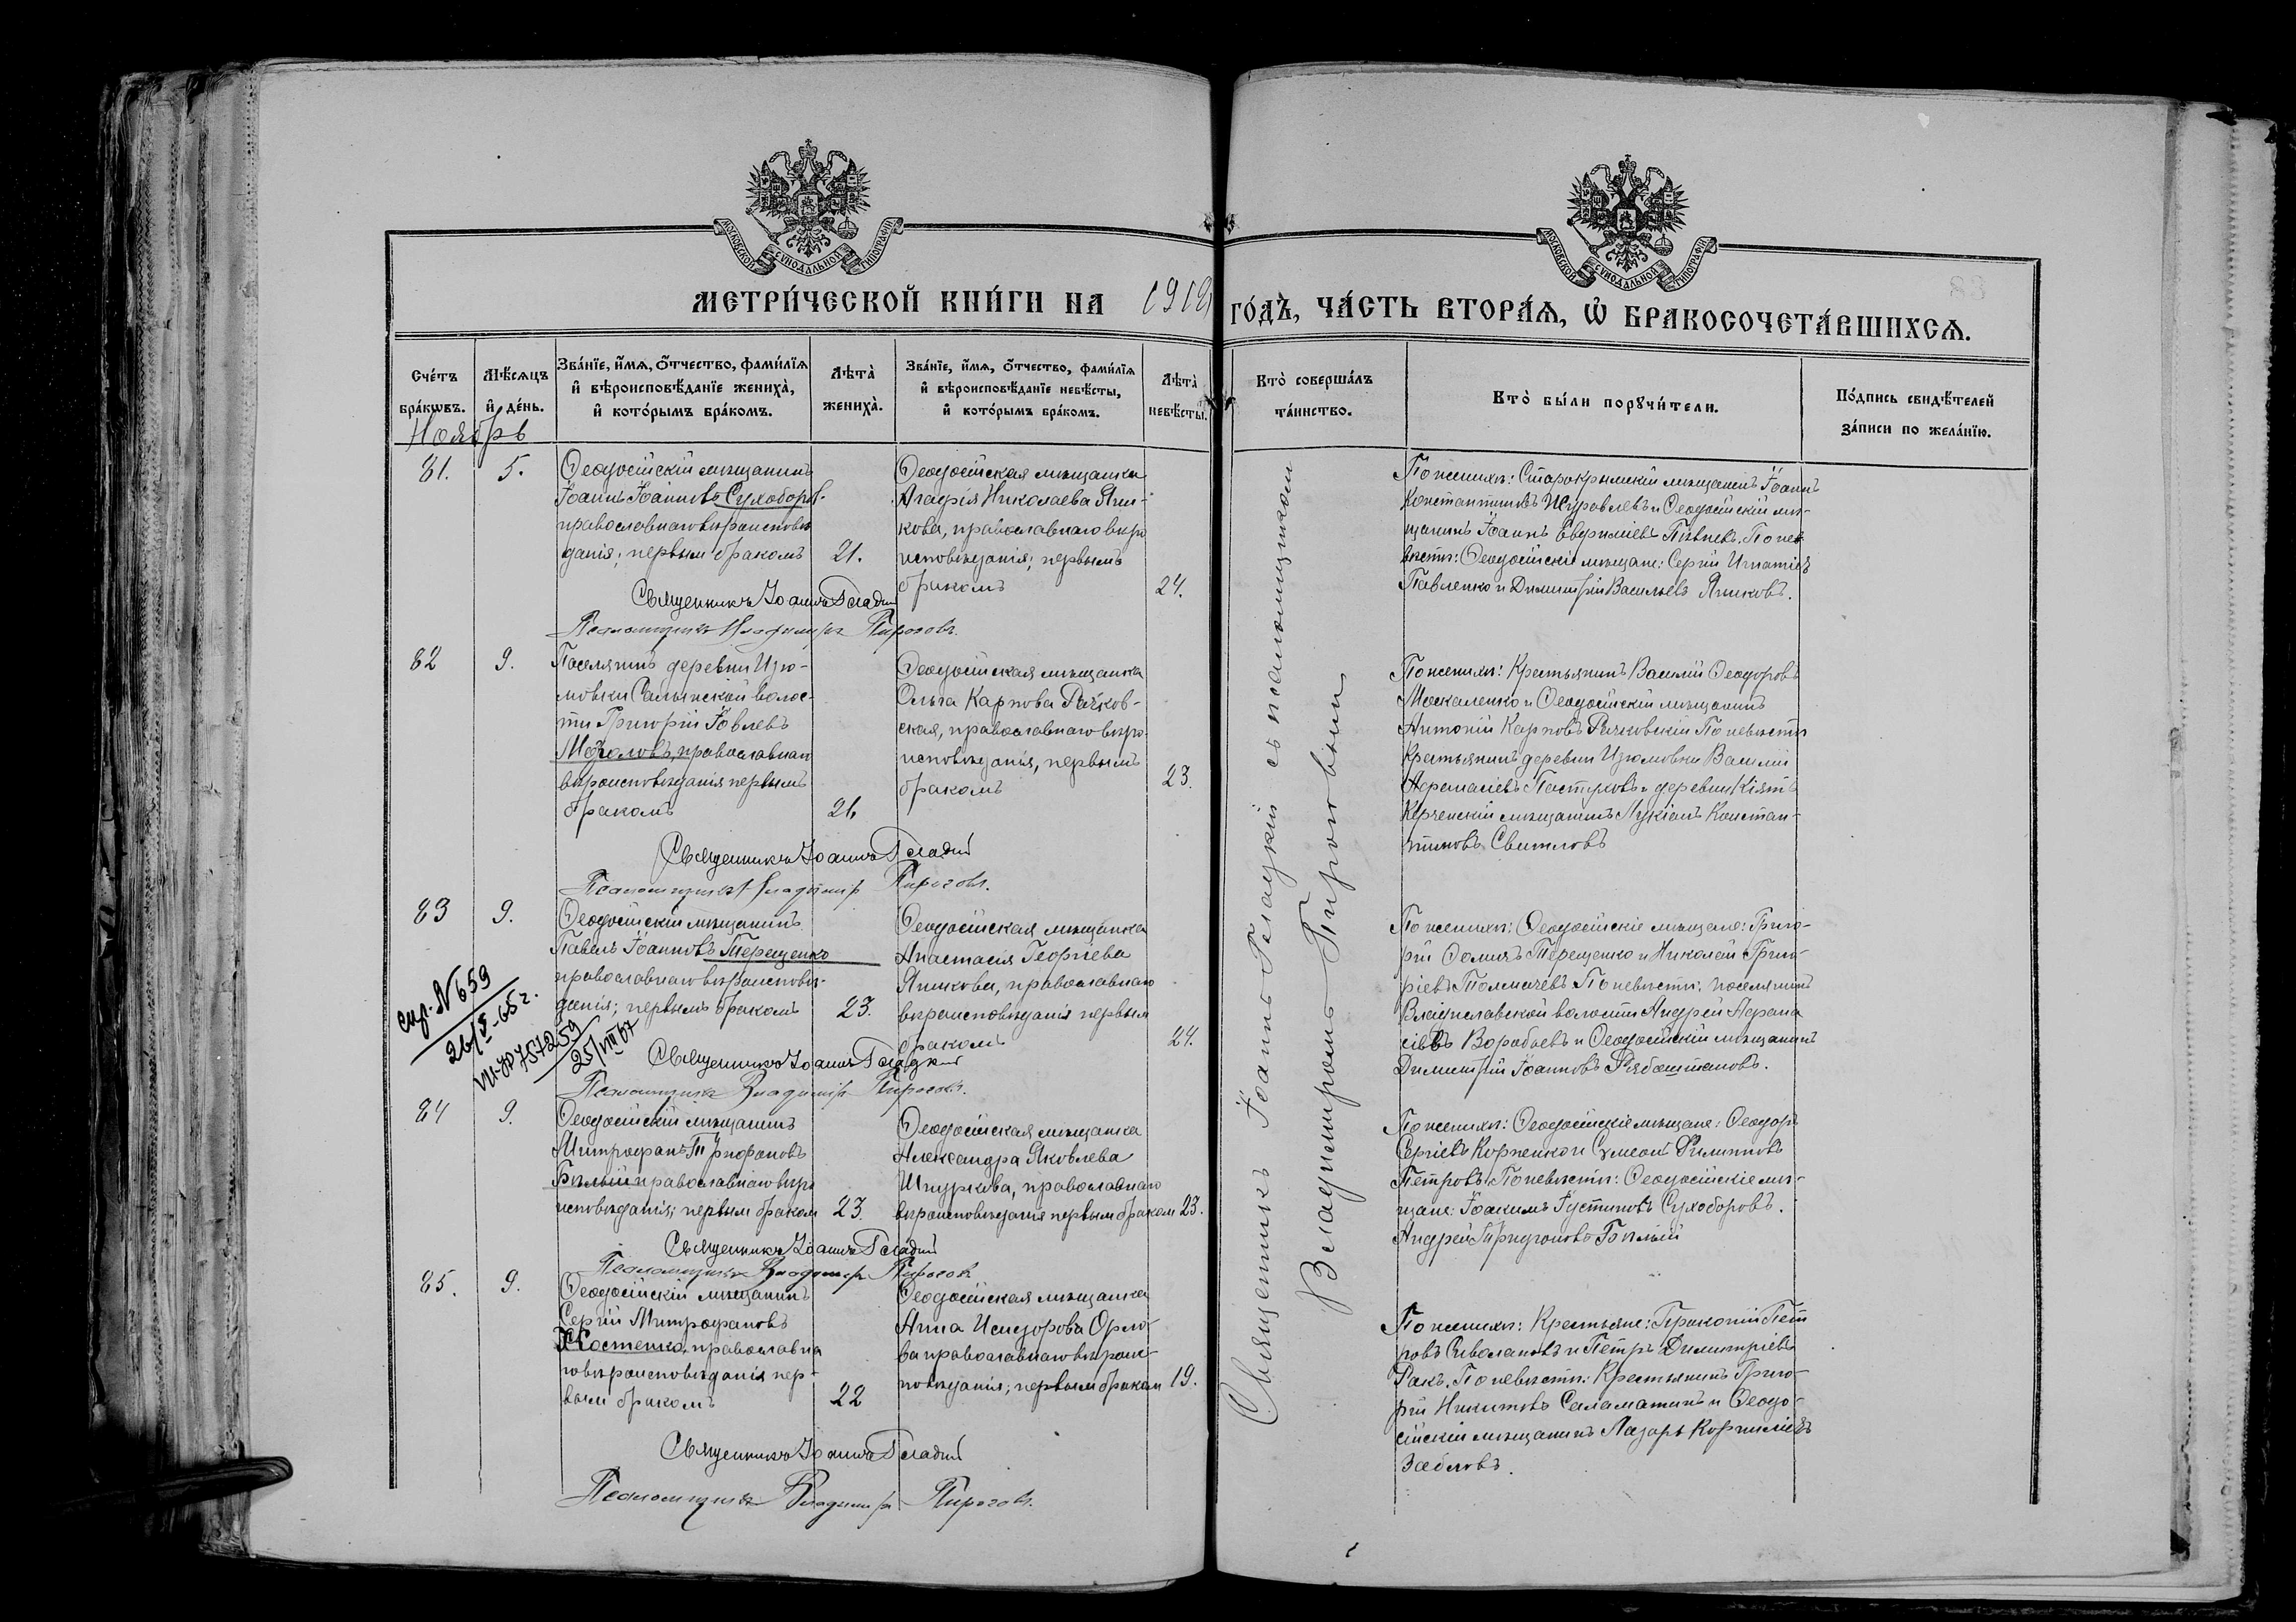 МОСКОВСКОЙ СѴНОДАЛЬНОЙ ТИПОГРАФІИ
МОСКОВСКОЙ СѴНОДАЛЬНОЙ ТИПОГРАФІИ
МЕТРИ́ЧЕСКОЙ КНИ́ГИ НА
ГО́ДЪ, ЧА́СТЬ ВТОРА́Ѧ, Ѡ҆ БРАКОСОЧЕТА́ВШИХСѦ.
Сче́тъ бра́кѡвъ.
Мѣ́сѧцъ и҆ де́нь.
Зва́нїе, и҆́мѧ, ѻ҆́тчество, фами́лїѧ и҆ вѣроисповѣ́данїе жениха̀, и҆ кото́рымъ бра́комъ.
Лѣта̀ жениха̀.
Зва́нїе, и҆́мѧ, ѻ҆́тчество, фами́лїѧ и҆ вѣроисповѣ́данїе невѣ́сты, и҆ кото́рымъ бра́комъ.
Лѣта̀ невѣ́сты.
Кто̀ соверша́лъ та́инство.
Кто̀ бы́ли порꙋчи́тели.
По́дпись свидѣ́телей за́писи по жела́нїю.
Ноябрь
81. 5.
Ѳеодосійскій мѣщанинъ
Іоаннъ Іоанновъ Сухоборов
православнаго вѣроисповѣ
данія; первым бракомъ 21.
Ѳеодосійская мѣщанка
Агафія Николаева Яни-
кова, православнаго вѣро
исповѣданія; первымъ
бракомъ 24.
По женихѣ: Старокрымскій мѣщанинъ Іоаннъ
Константиновъ Журавлевъ и Ѳеодосійскій мѣ-
щанинъ Іоаннъ Пѣвнев. По не
вѣстѣ: Ѳеодосійскіе мѣщане: Сергій Игнатіевъ
Павленко и Димитрій Васильевъ Яников.
Священникъ Іоаннъ Гладкій
Псаломщикъ Владиміръ Пироговъ.
82 9.
Поселянинъ деревни Изю-
мовки Салынской волос-
ти Григорій Іовлевъ
православнаго
вѣроисповѣданія первымъ
бракомъ 21
Ѳеодосійская мѣщанка
Ольга Карпова Рачков-
ская, православнаго вѣро-
исповѣданія, первымъ
бракомъ 23.
По женихѣ: Крестьянинъ Василій Ѳеодоровъ
Москаленко и Ѳеодосійскій мѣщанинъ
Антоній Карповъ Рачковскій По невѣстѣ
Крестьянинъ деревни Изюмовки Василій
Аѳанасіевъ Пастуховъ и деревни Кіятъ
Керченскій мѣщанинъ Лукіанъ Констан-
тиновъ Свитловъ
Священникъ Іоаннъ Гладкій
Псаломщикъ Владиміръ Пироговъ.
83 9.
Ѳеодосійскій мѣщанинъ
Павелъ Іоанновъ Терещенко
православнаго вѣроисповѣ-
данія; первымъ бракомъ 23.
Ѳеодосійская мѣщанка
Анастасія Георгіева
Яникова, православнаго
вѣроисповѣданія первым
бракомъ 24.
По женихѣ: Ѳеодосійскіе мѣщане: Григо-
рій Ѳоминъ Терещенко и Николай Григо-
ріевъ Толмачевъ. По невѣстѣ: поселянинъ
Владиславской волости Андрей Аѳана
сіевъ Воробьевъ и Ѳеодосійскій мѣщанинъ
Димитрій Іоанновъ Рябоштановъ.
спр. N 659
26/X-65 г.
VII-ЯР 757259
25/VIII 67
Священникъ Іоаннъ Гладкій
Псаломщикъ Владиміръ Пироговъ.
84 9.
Ѳеодосійскій мѣщанинъ
Митрофанъ Трифоновъ
Бѣлый православнаго вѣро
исповѣданія; первым браком 23.
Ѳеодосійская мѣщанка
Александра Яковлева
Шнуркова, православнаго
вѣроисповѣданія первым браком 23.
По женихѣ: Ѳеодосійскіе мѣщане: Ѳеодоръ
Сергіевъ Корненко и Сѵмеонъ Филипповъ
Петровъ. По невѣстѣ: Ѳеодосійскіе мѣ-
щане: Іоакимъ Іустиновъ Сухоборовъ.
Андрей Трифоновъ Бѣлый
Священникъ Іоаннъ Гладкій
Псаломщикъ Владиміръ Пирогов
85. 9.
Ѳеодосійскій мѣщанинъ
Сергій Митрофановъ
Костенко, православна
го вѣроисповѣданія пер-
вым бракомъ 22
Ѳеодосійская мѣщанка
Анна Исидорова Орло-
ва православнаго вѣроис-
повѣданія; первым браком 19.
По женихѣ: Крестьяне: Прокопій Пет
ровъ и Петръ Димитріевъ
Ракъ. По невѣстѣ: Крестьянинъ Григо-
рій Никитовъ Саламатинъ и Ѳеодо-
сійскій мѣщанинъ Лазарь Корниліевъ
Зябловъ.
Священникъ Іоаннъ Гладкій
Псаломщикъ Владиміръ Пироговъ.
Священникъ Іоаннъ Гладкій съ псаломщикомъ
Владиміромъ Пироговымъ